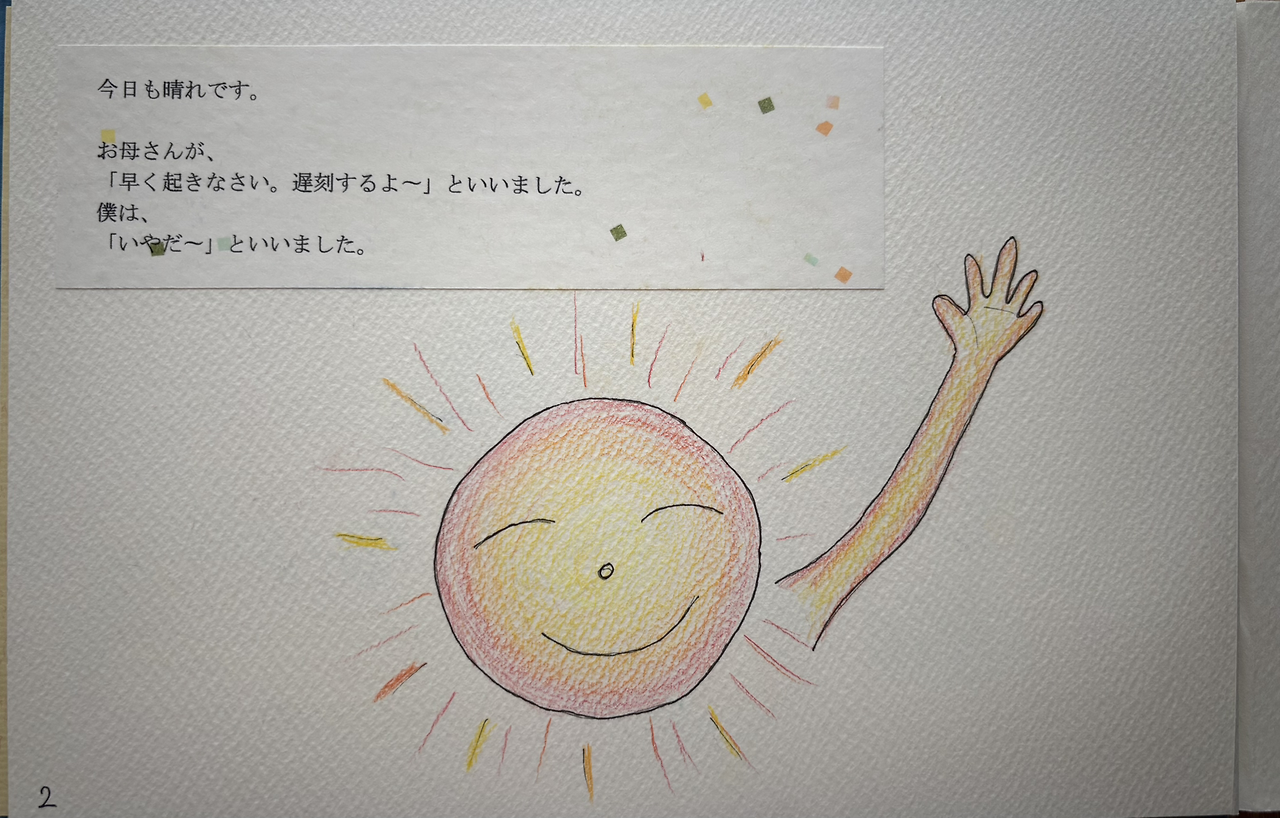 今日も晴れです。
お母さんが、
「早く起きなさい。遅刻するよ～」といいました。
僕は、
「いやだ～」といいました。
2